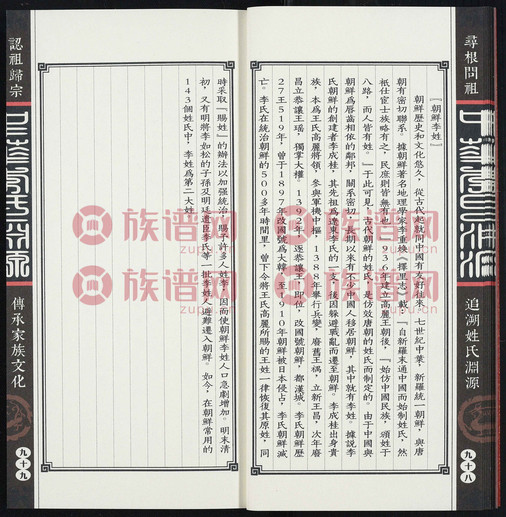 尋根問祖
追溯姓氏淵源
九十八
『朝鮮李姓』
朝鮮歷史和文化悠久，從古代起就同中國有友好往來，七世紀中葉，新羅統一朝鮮，與唐
朝有密切聯系。據朝鮮著名地理學家李重煥《擇里志》載：「自新羅末通中國而始制姓氏，然
衹仕宦士族略有之，民庶則皆無有也。936年建立高麗王朝後，「始仿中國民族，頒姓于
八路，而人皆有姓。」于此可見，古代朝鮮的姓氏，是仿效唐朝的姓氏而制定的。由于中國與
朝鮮爲唇齒相依的鄰邦，關系密切，長期以來有不少中國人移居朝鮮，其中就有李姓。據說李
氏朝鮮的創建者李成桂，其先祖爲遼東李氏的一支，後因躲避戰亂而遷至朝鮮。李成桂出身貴
族，本爲王氏高麗將領，參與軍機中樞，1388年舉行兵變，廢舊王禑，立新王昌，次年廢
昌立恭讓王瑤，獨掌大權。1392年，逐恭讓王，即位，改國號朝鮮，都漢城。李氏朝鮮歷
27王519年，曾于1897年改國號爲大韓，至1910年朝鮮被日本侵占，李氏朝鮮滅
亡。李氏在統治朝鮮的500多年時間里，曾下令將王氏高麗所賜的王姓一律恢復其原姓，同
時采取「賜姓」的辦法以加强統治，賜予許多人姓李，因而使朝鮮李姓人口急劇增加。明末清
初，又有明將李如松的子孫及明廷遺臣李氏等一批李姓人避難遷入朝鮮。如今，在朝鮮常用的
143個姓氏中，李姓爲第二大姓。
認祖歸宗
傳承家族文化
九十九
族谱网
族谱网
族谱网
族谱网